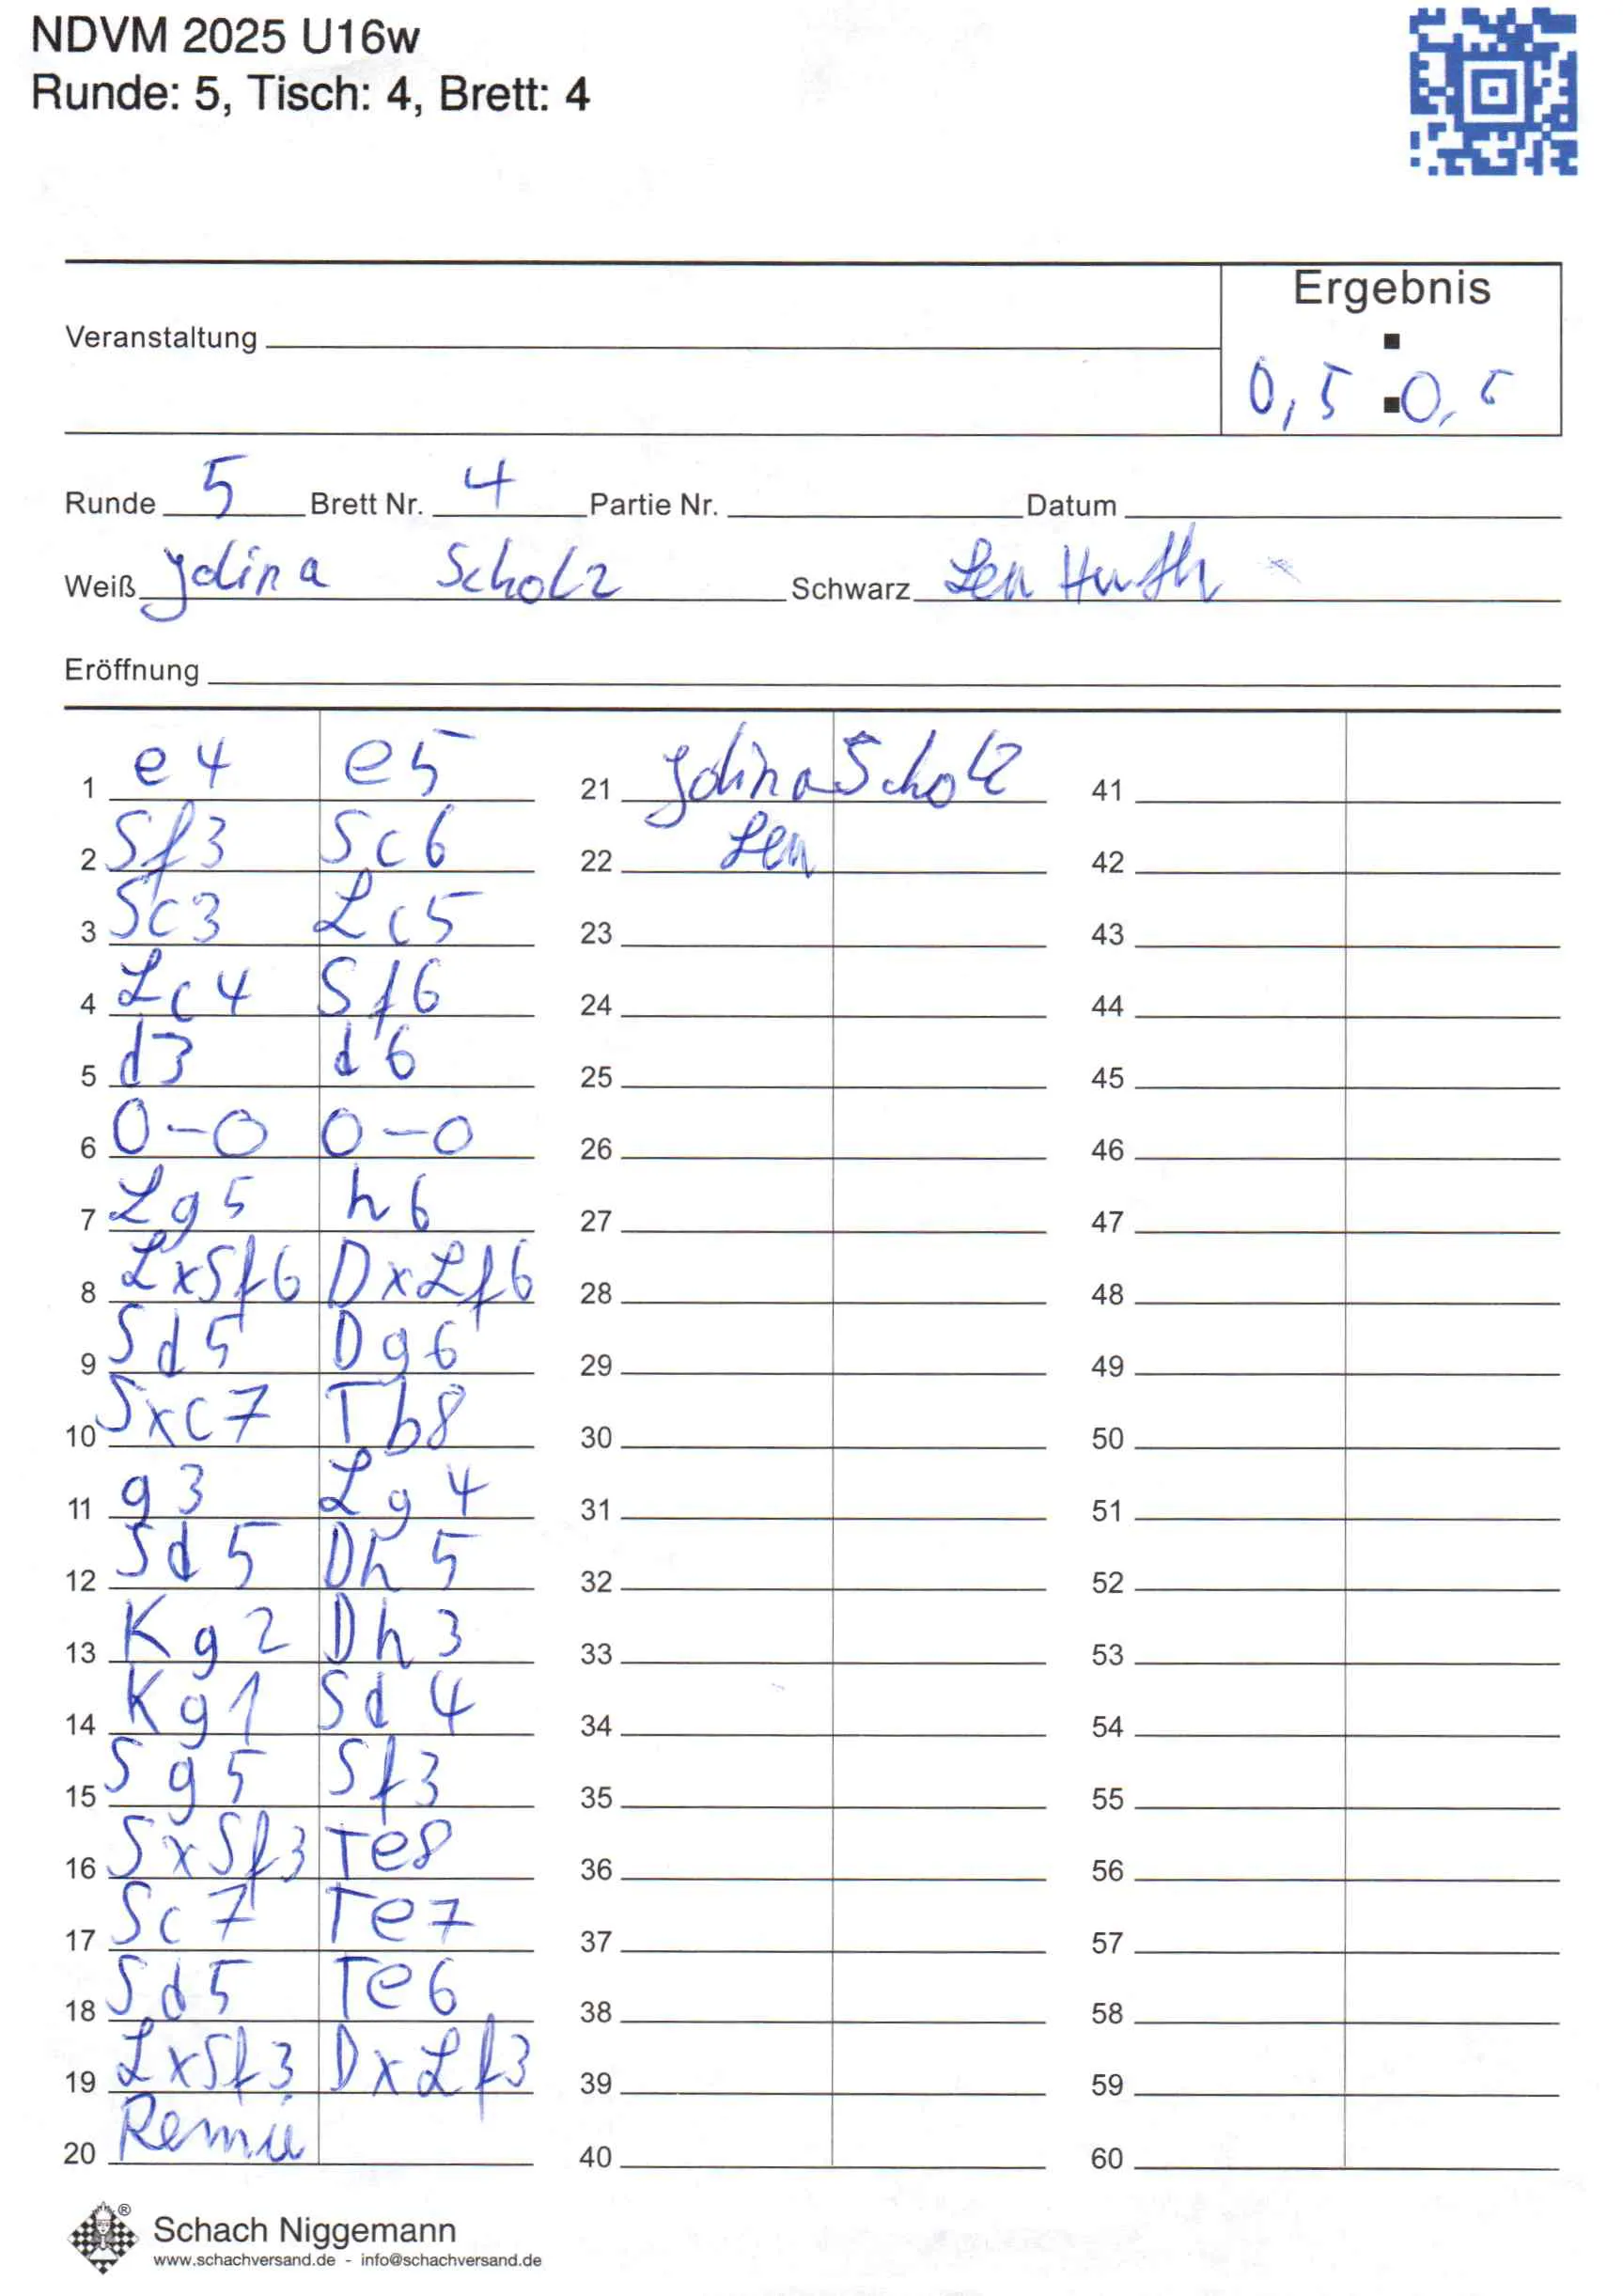 NDVM 2025 U16w
Runde: 5, Tisch: 4, Brett: 4
Ergebnis
Veranstaltung
0,5 : 0,5
Runde 5 Brett Nr. 4 Partie Nr. Datum
Weiß Jolina Scholz Schwarz Lea Huth
Eröffnung
1 e4 e5 21 Jolina Scholz 41
2 Sf3 Sc6 22 Lea 42
3 Sc3 Lc5 23 43
4 Lc4 Sf6 24 44
5 d3 d6 25 45
6 0-0 0-0 26 46
7 Lg5 h6 27 47
8 LxSf6 DxLf6 28 48
9 Sd5 Dg6 29 49
10 Sxc7 Tb8 30 50
11 g3 Lg4 31 51
12 Sd5 Dh5 32 52
13 Kg2 Dh3 33 53
14 Kg1 Sd4 34 54
15 Sg5 Sf3 35 55
16 SxSf3 Te8 36 56
17 Sc7 Te7 37 57
18 Sd5 Te6 38 58
19 LxSf3 DxLf3 39 59
20 Remi 40 60
Schach Niggemann
www.schachversand.de - info@schachversand.de